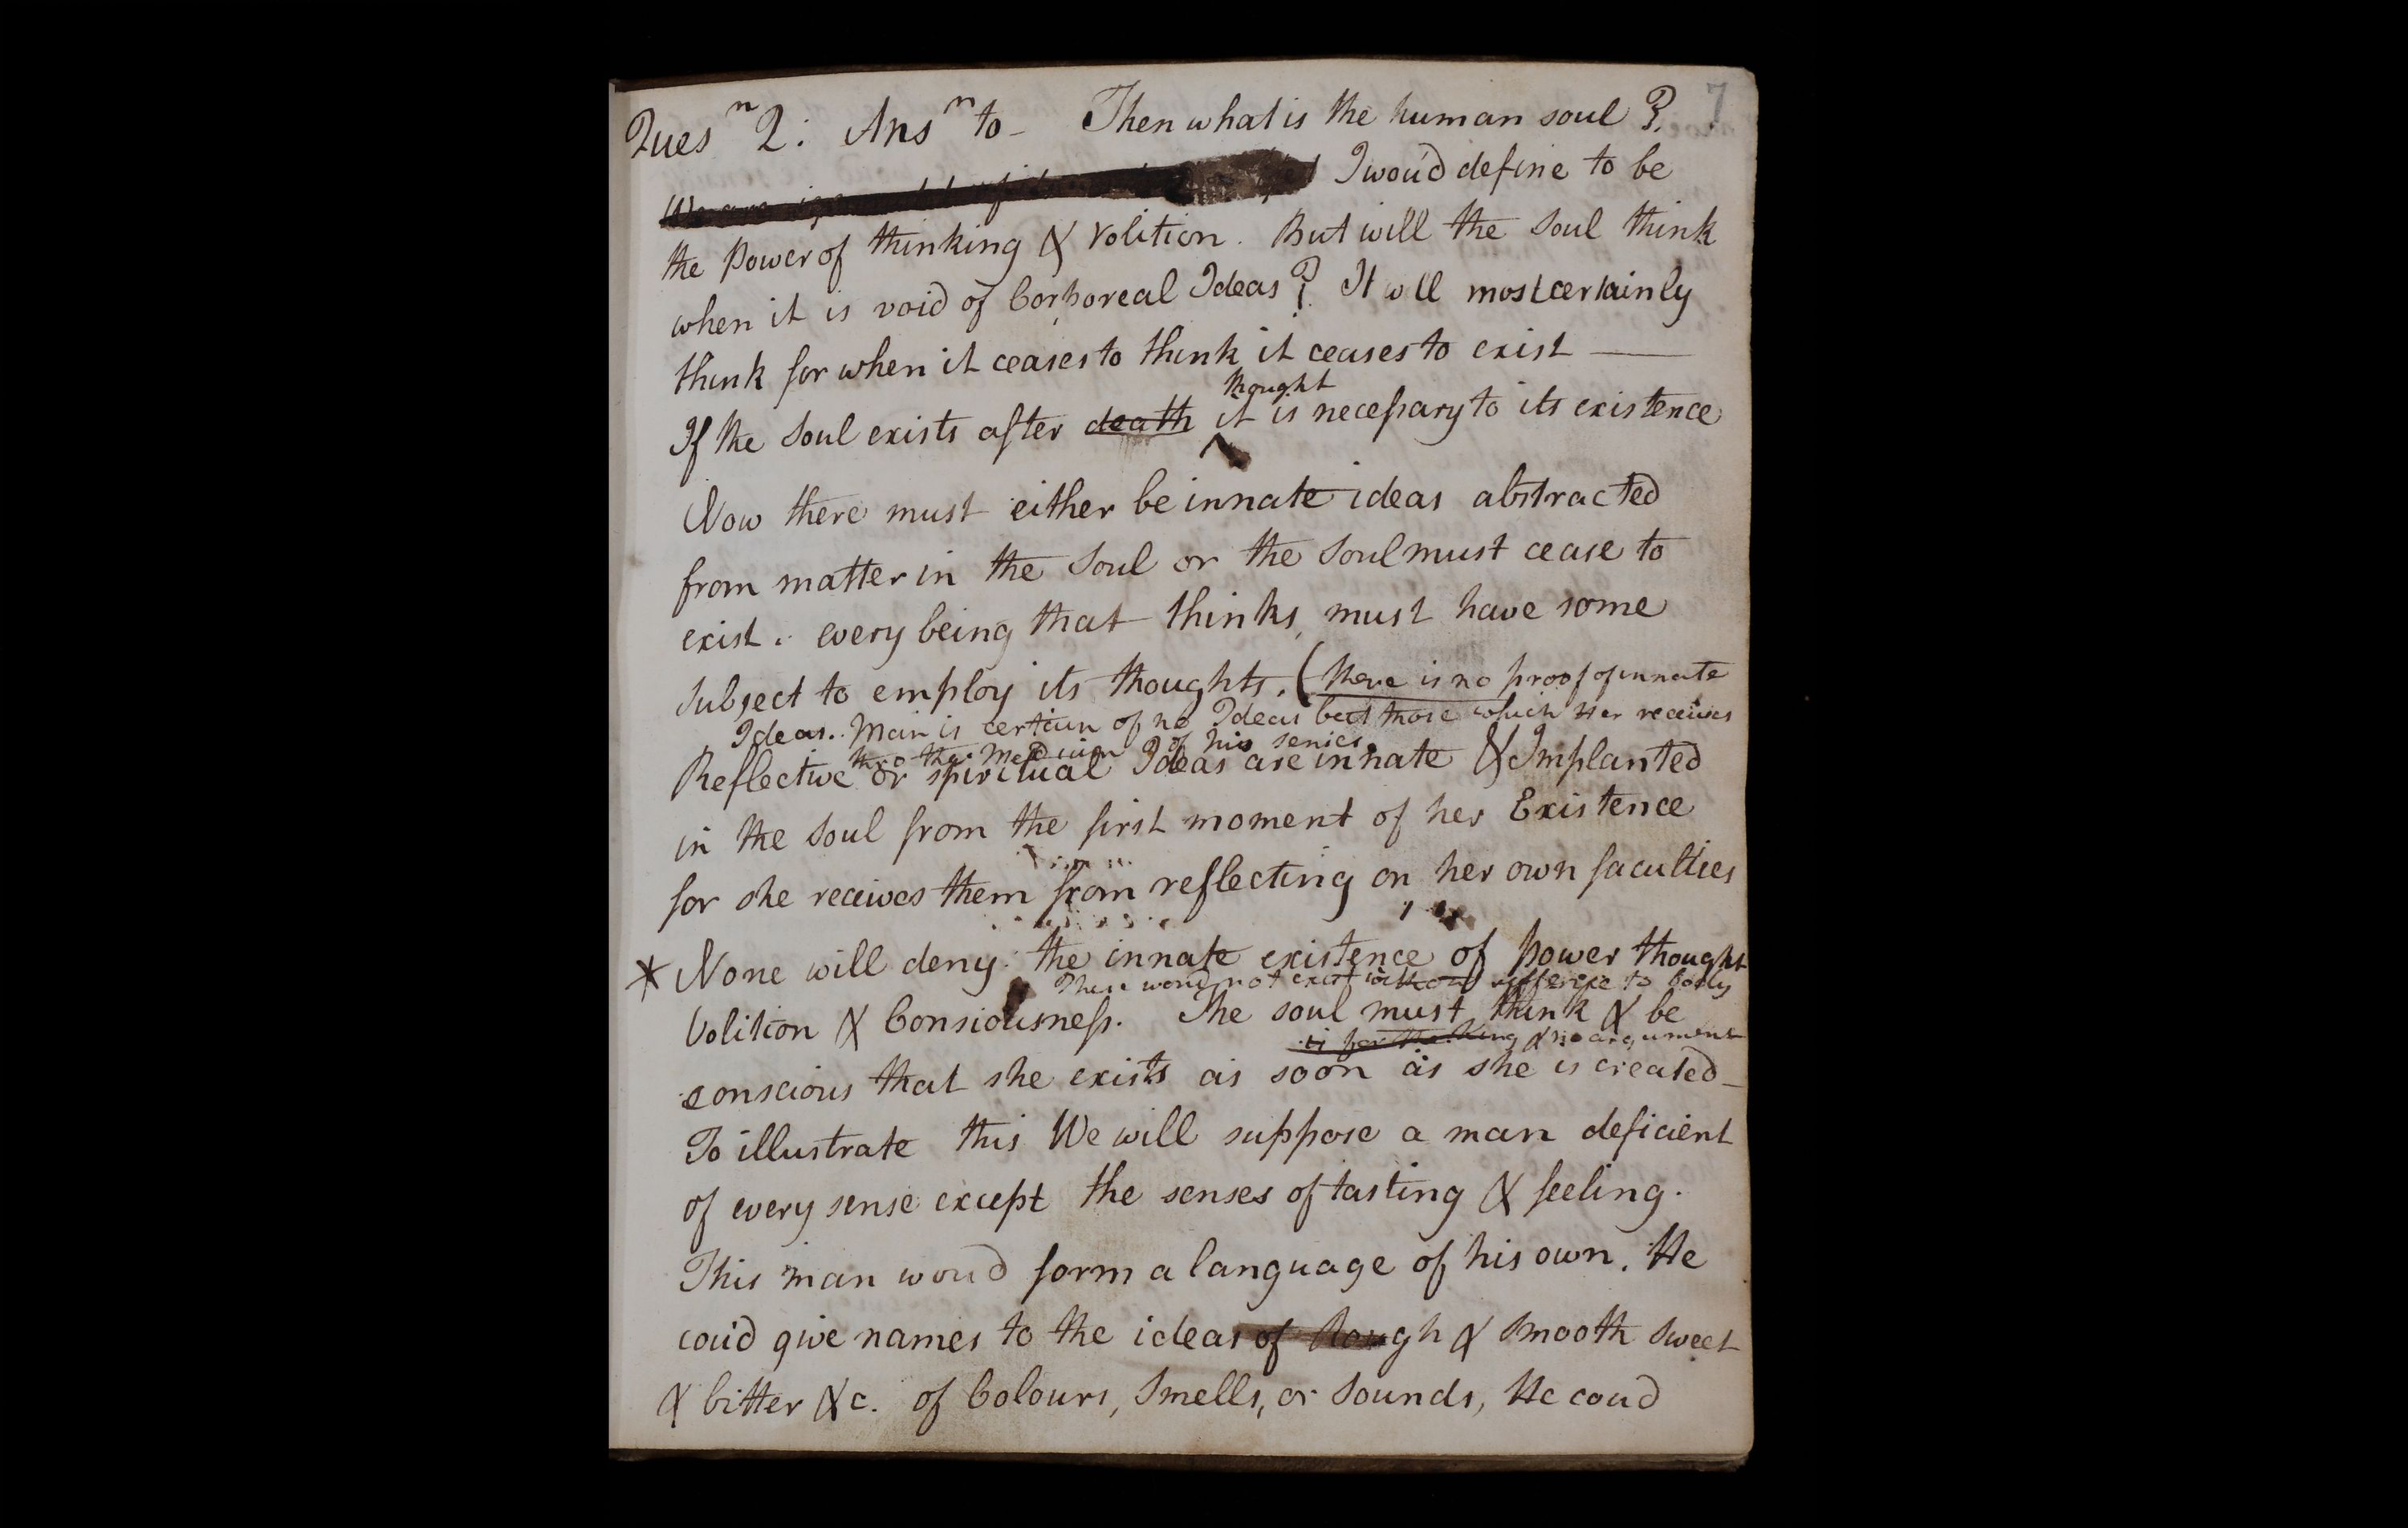 7
Quesn 2: Ansn to - Then what is the human soul?
I wou'd define to be
the Power of thinking & Volition. But will the Soul think
when it is void of Corporeal Ideas? It will most certainly
think for when it ceases to think it ceases to exist —
thought
If the Soul exists after death it is necessary to its existence
Now there must either be innate ideas abstracted
from matter in the Soul or the Soul must cease to
exist. every being that thinks, must have some
subject to employ its thoughts. (there is no proof of innate
Ideas. Man is certian of no Ideas but those which Her receives
thro the Medium of his senses.
Reflective or spiritual Ideas are innate & Implanted
in the Soul from the first moment of her Existence
for she receives them from reflecting on her own faculties
* None will deny the innate existence of power thought
These woud not exist without refference to body
Volition & Consiousness. The soul must think & be
& no argument
conscious that she exists as soon as she is created -
To illustrate this We will suppose a man deficient
of every sense except the senses of tasting & feeling.
This man woud form a language of his own. He
coud give names to the ideas of Rough & Smooth Sweet
& bitter &c. of Colours, Smells, or Sounds, He coud